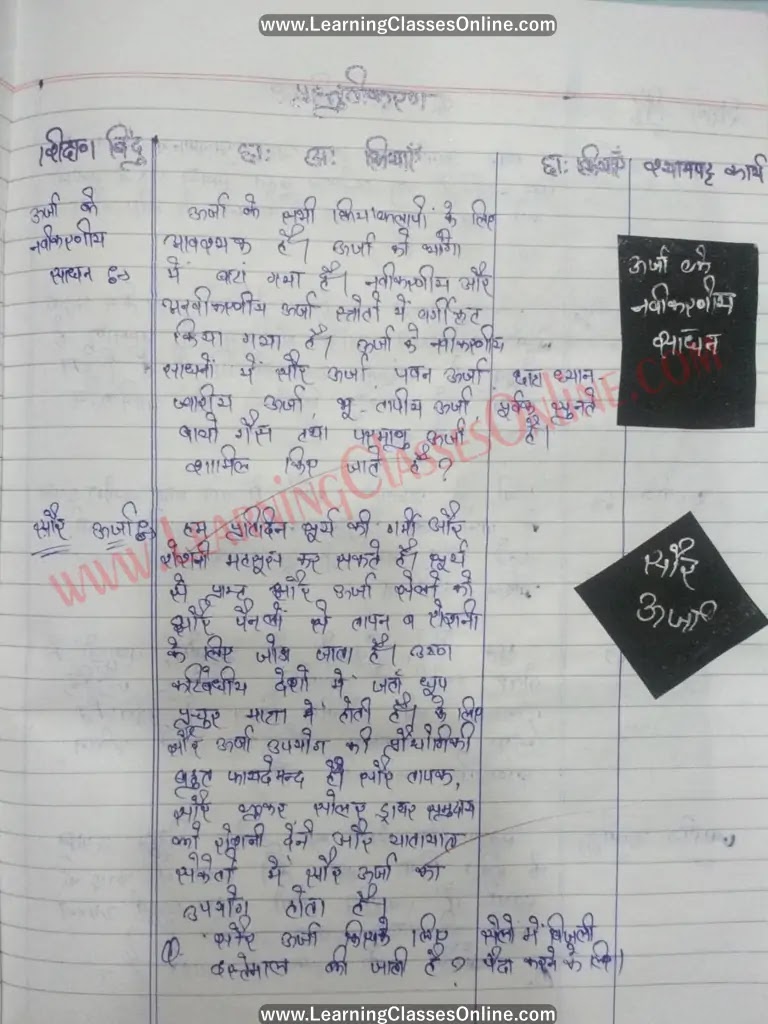 www.LearningClassesOnline.com
प्रस्तुतीकरण
शिक्षण बिंदु
छा: अ: क्रियाएँ
छा: क्रियाएँ
श्यामपट्ट कार्य
ऊर्जा के
नवीकरणीय
साधन
ऊर्जा के सभी क्रियाकलापों के लिए
आवश्यक है। ऊर्जा को भागो
में बांटा गया है। नवीकरणीय और
अनवीकरणीय ऊर्जा स्त्रोतो में वर्गीकृत
किया गया है। ऊर्जा के नवीकरणीय
साधनों में सौर ऊर्जा, पवन ऊर्जा
ज्वारीय ऊर्जा, भू-तापीय ऊर्जा
बायो गैस तथा परमाणु ऊर्जा
शामिल किए जाते है?
छात्र ध्यान
पूर्वक सुनते
है।
ऊर्जा के
नवीकरणीय
साधन
सौर ऊर्जा
हम प्रतिदिन सूर्य की गर्मी और
रोशनी महसूस कर सकते है। सूर्य
से प्राप्त सौर ऊर्जा सेलो को
सौर पैनलों से तापन व रोशनी
के लिए जोड़ा जाता है। उष्ण
कटिबंधीय देशो में जहाँ धूप
प्रचुर मात्रा में होती है। के लिए
सौर ऊर्जा उपयोग की प्रौद्योगिकी
बहुत फायदेमन्द है। सौर तापक,
सौर कूकर सोलर ड्रायर समुदाय
को रोशनी देने और यातायात
संकेतो में सौर ऊर्जा का
उपयोग होता है।
सौर
ऊर्जा
Q. सौर ऊर्जा किसके लिए
इस्तेमाल की जाती है?
सेलो में बिजली
पैदा करने के लिए।
www.LearningClassesOnline.com
www.LearningClassesOnline.com